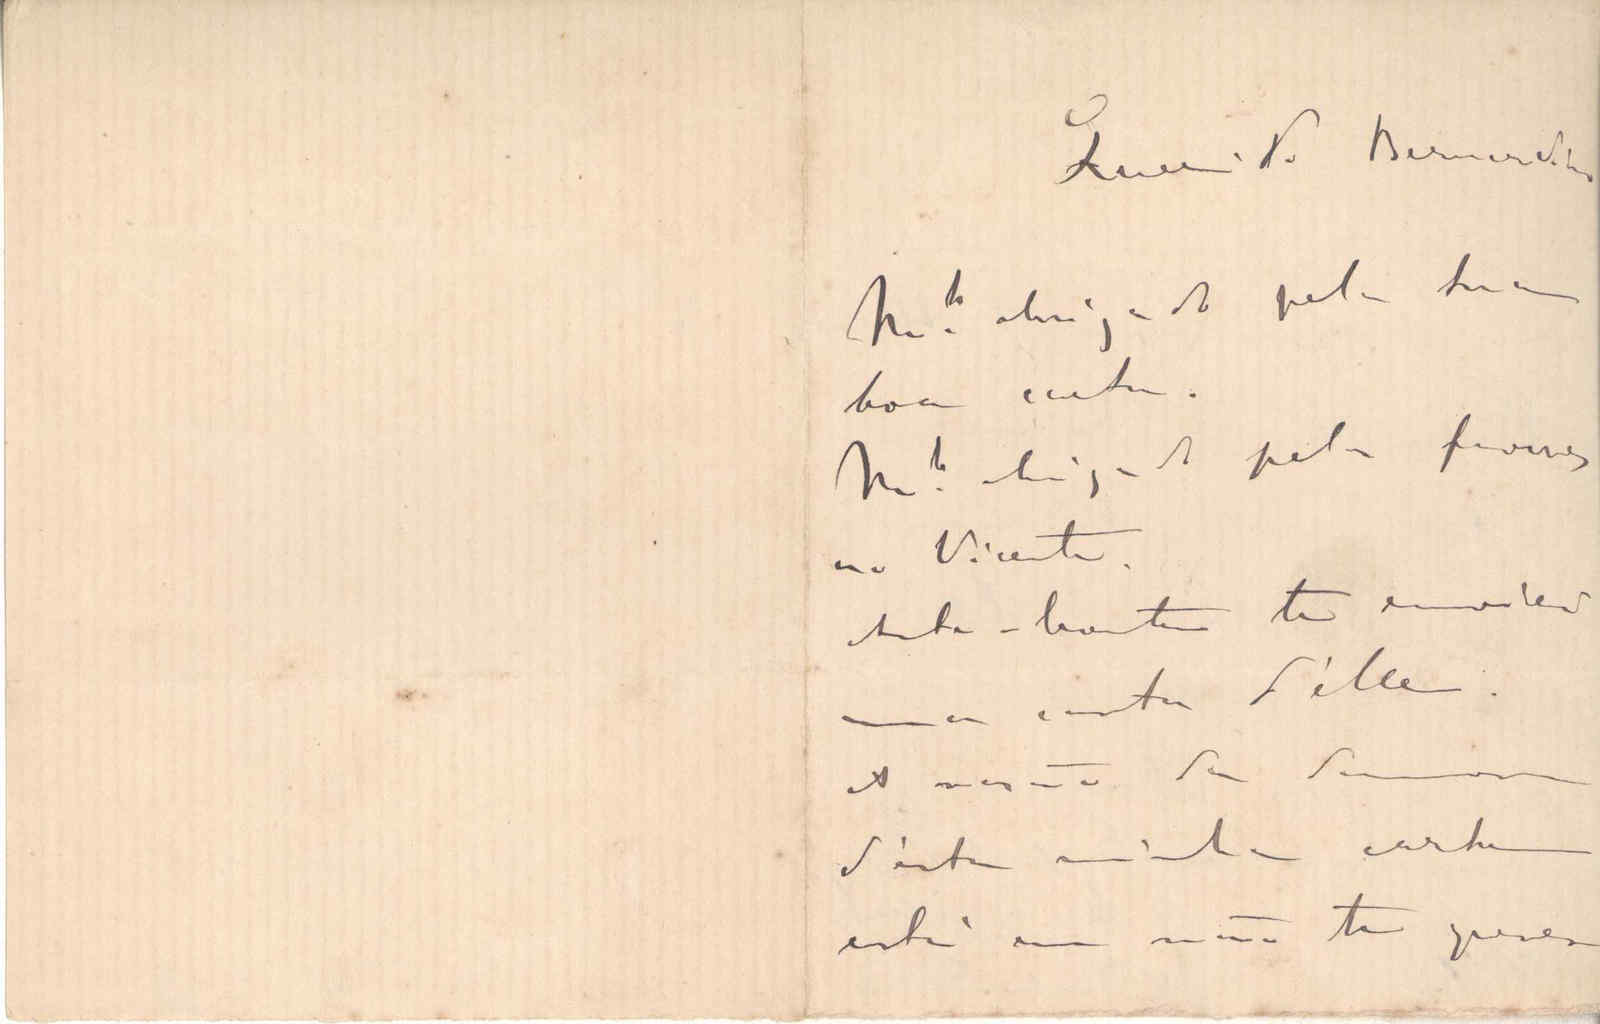 Querido Bernardino
M.to obrigado pela tua
boa carta.
M.to obrigado pela
ao Vicente.
Ante-hontem te enviei
uma carta d'elle.
A razão da demora
d'esta minha carta
está em não te querer